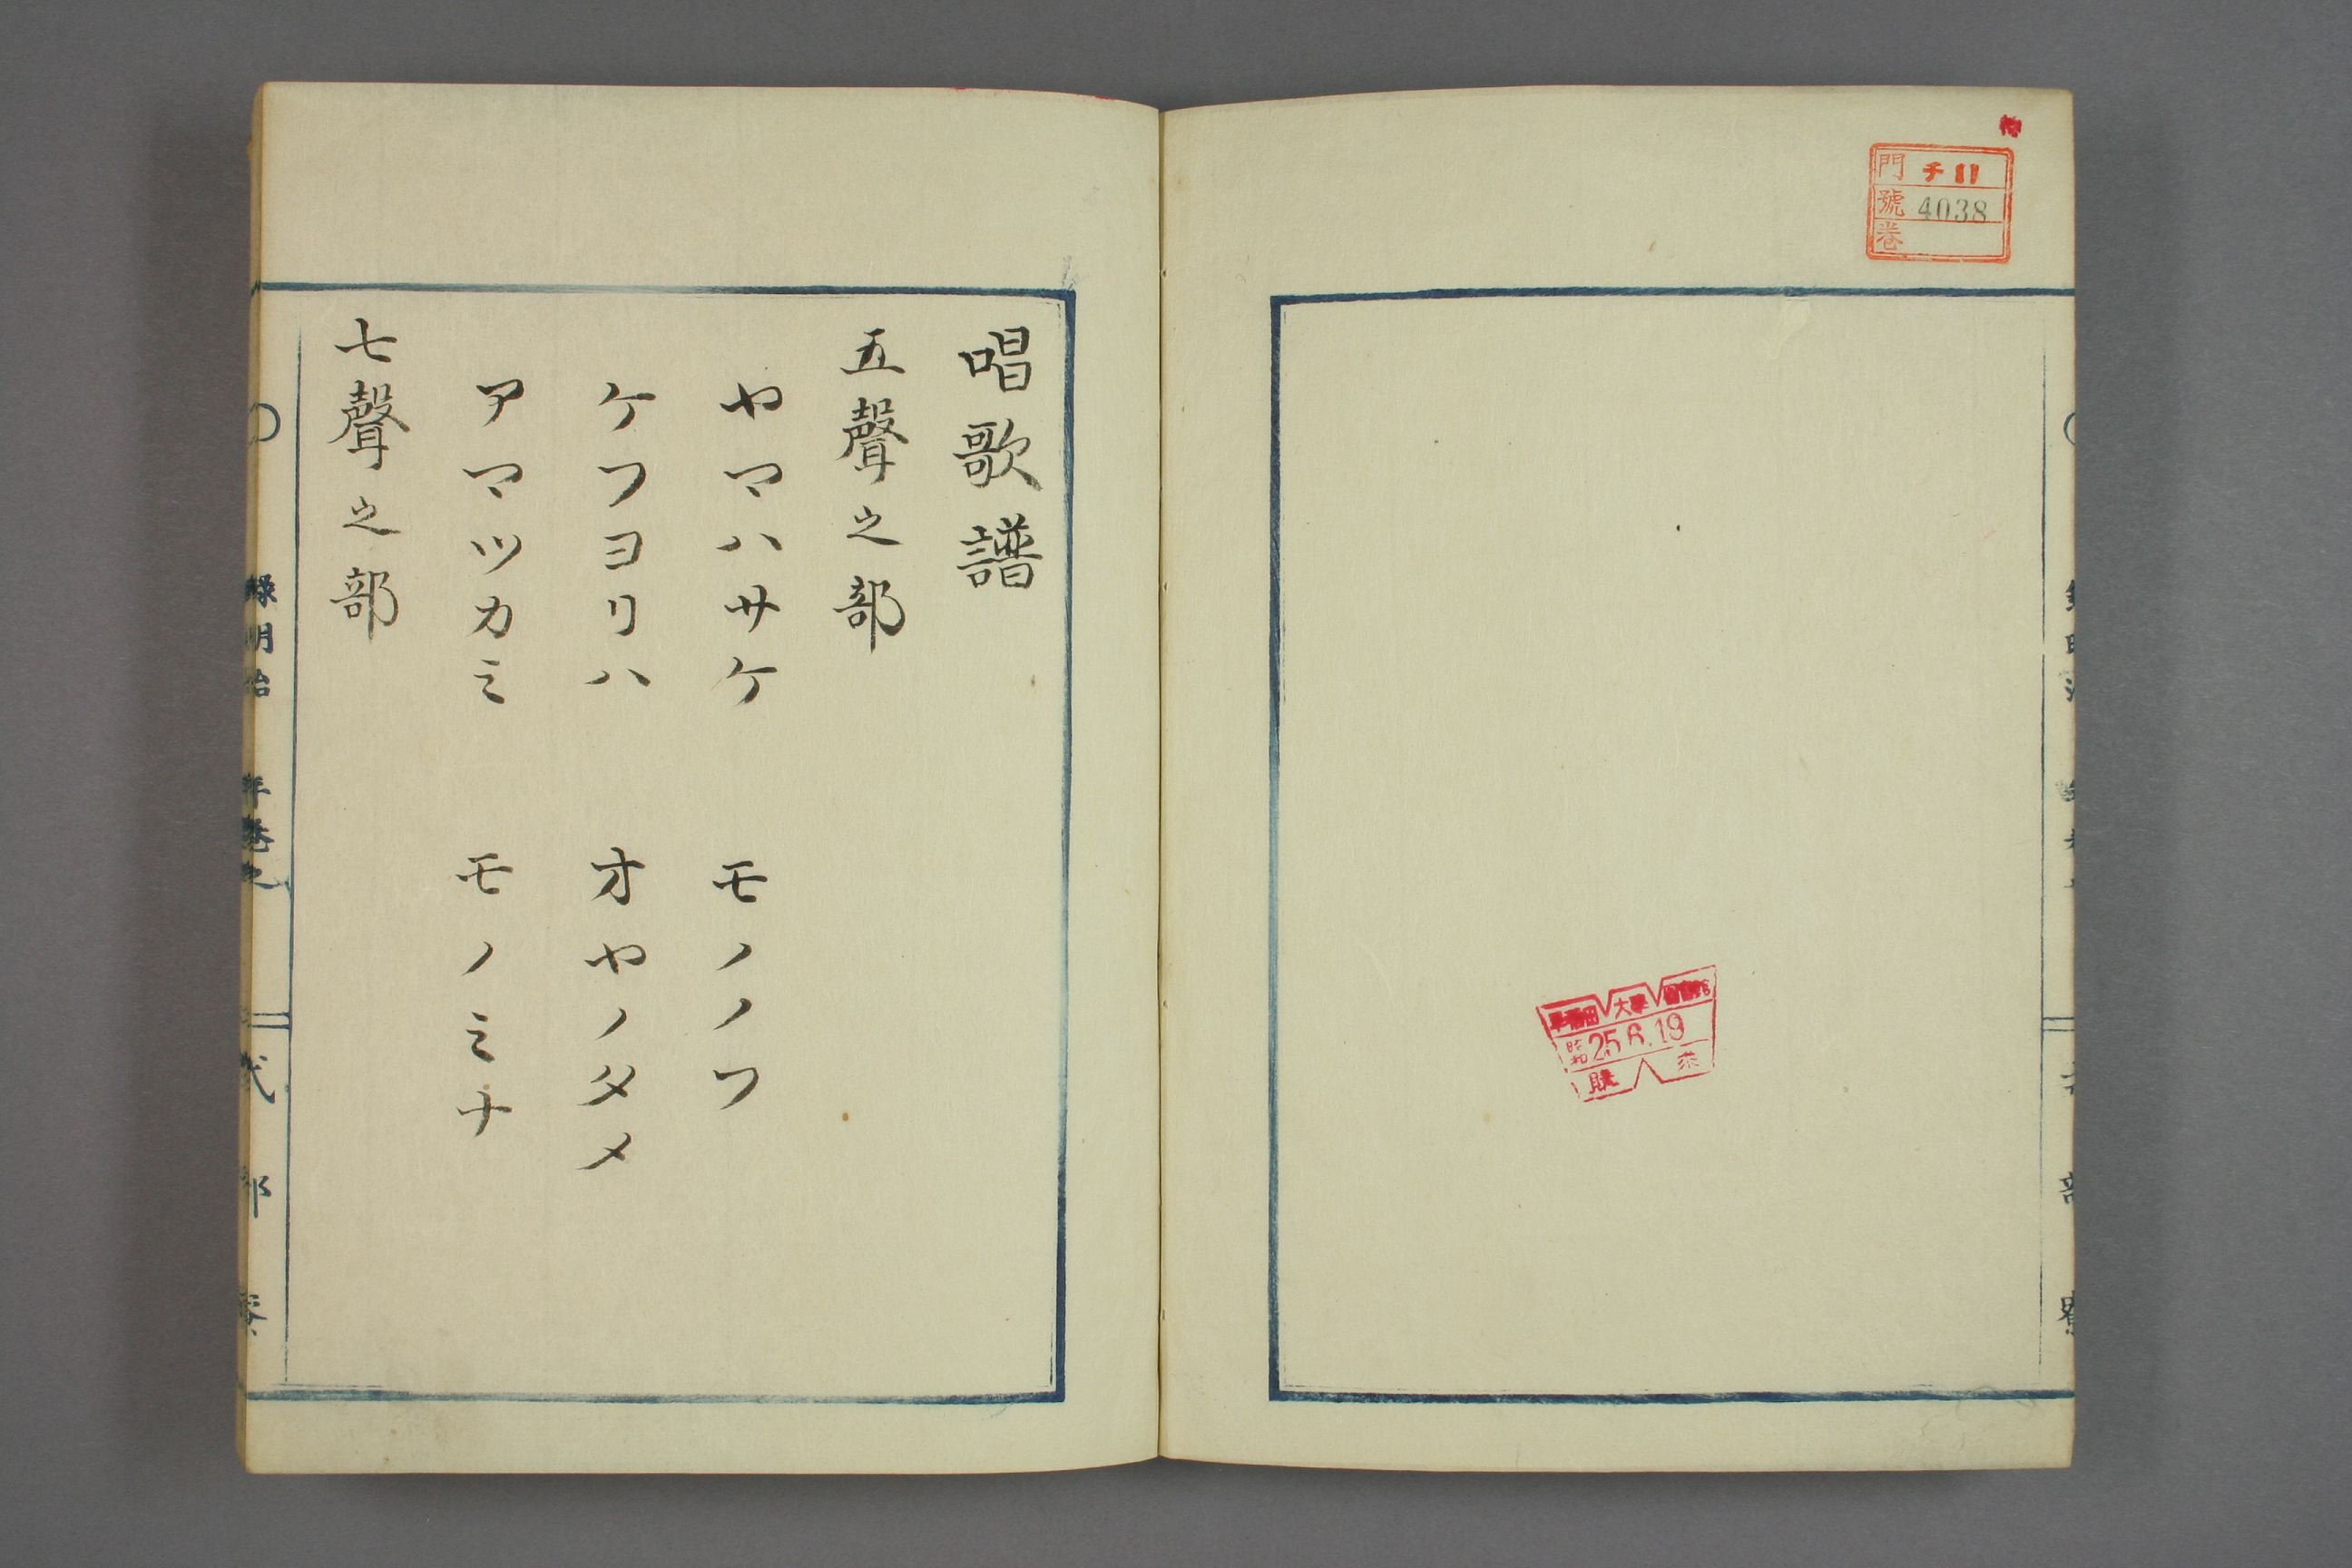 門 チ11
號 4038
巻
早稲田大學圖書館
昭和25.6.19
購 求
唱歌譜
五聲之部
ヤマハサケ モノノフ
ケフヨリハ オヤノタメ
アマツカミ モノミナ
七聲之部